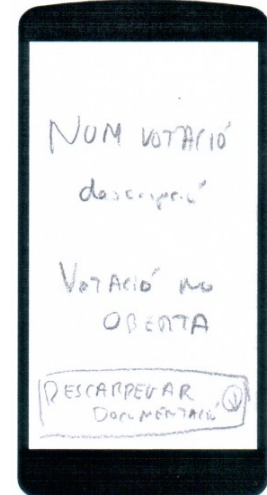 NUM VOTACIÓ
descripció
VOTACIÓ NO
OBERTA
DESCARREGAR
DOCUMENTACIÓ